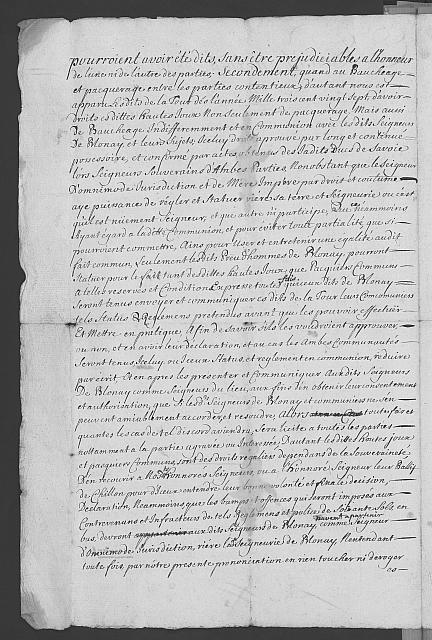 pourroient avoir été dits, sans être préjudiciables a l'honneur
de l'une ni de l'autre des parties. Secondement, quand au Baucheage
et pacquerage entre les parties contentieux, d'autant nous est
apparu lesdits de la Tour dès l'année Mille trois cent vingt sept, d'avoir
droits esdittes hautes Joux Non seulement de pacquerage. Mais aussi
de Baucheage Indifferemment et en Communion avec lesdits Seigneurs
De Blonay, et leurs sujets, Iceluy droit approuvé par long et continué
possessoire, et confirmé par actes obtenus des Jadits Ducs de Savoie
lors Seigneurs Souverains d'Ambes Parties, Nonobstant que le Seigneur
D'omnimode Jurisdiction et de Mere Impère par droit et coutume
aye puissance de régler et Statuer vière sa terre et Seigneurie ou c'est
qu'il est niement Seigneur, et que autre n'i participe. Que ce neammoins
ayant égard a la ditte Communion, et pour éviter toute partialité que si
pourroient commettre, Ains pour User et entretenir une égalité audit
fait commun, Seulement lesdits Preudhommes de Blonay, pourront
Statuer pour le fait tant desdittes hautes Joux, que Paquiers Communs
a telle reserve et Condition Expresse toutefois, qu'iceux dits de Blonay
Seront tenus envoyer et communiquer esdits de la Tour leurs Concommuniers
tels Statuts & Reglemens pretendus avant que les pouvoir effectuer
Et Mettre en pratique, afin de Savoir s'ils les voudroient approuver,
ou non, et en avoir leur déclaration, et au cas les Ambes Communautés
Seront tenus Iceluy ou Iceux Statuts et reglement en communion, reduire
par écrit, et en après les presenter et Communiquer Auxdits Seigneurs
De Blonay comme Seigneurs du lieu, aux fins d'en obtenir leur consentement
et authorisation, que si lesdts Seigneurs de Blonay et communiers ne s'en
peuvent amiablement accorder, et resoudre, Alors toutefois et
quantes les cas de tel discord aviendra, Sera licite a toutes les parties
nottamment a la partie agravée ou Interessée, D'autant lesdittes hautes joux
et pasquiers Communs sont des droits regaliens dependans de la Souveraineté
D'en recourir a Nosdts Honnorés Seigneurs, ou a l'Honnoré Seigneur leur Ballif
de Chillon pour d'Iceux entendre leur bonne volonté et finale decision,
Declaration, Neanmoins que les bamps & offences qui seront imposés aux
Contrevenans et Infracteurs de tels Reglemens et police de soixante solz, en
bas, devront doivent apartenir auxdits Seigneurs de Blonay, comme Seigneur
d'Omnimode Jurisdiction, rière ladte Seigneurie de Blonay. N'entendant
toutefois par nôtre presente prononciation en rien toucher ni deroger
es